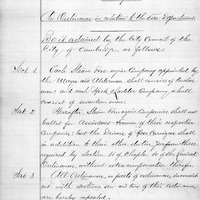 An Ordinance in relation to the Fire Department.
Be it ordained by the City Council of the
City of Cambridge as follows
Sect. 1. Each Steam Fire engine Company appointed by
the Mayor and Aldermen shall consist of twelve
men and each Hook & Ladder Company shall
consist of seventeen men.
Sect. 2. Steam Fire engine Companies shall not
be called
Companies, but the Drivers of
in addition to their other duties, perform those
required by Section 11 of Chapter of the
Ordinances, without extra compensation therefor.
Sect. 3. All Ordinances, or parts of ordinances, inconsist-
ent with sections one and two of this ordinance, are
hereby repealed.